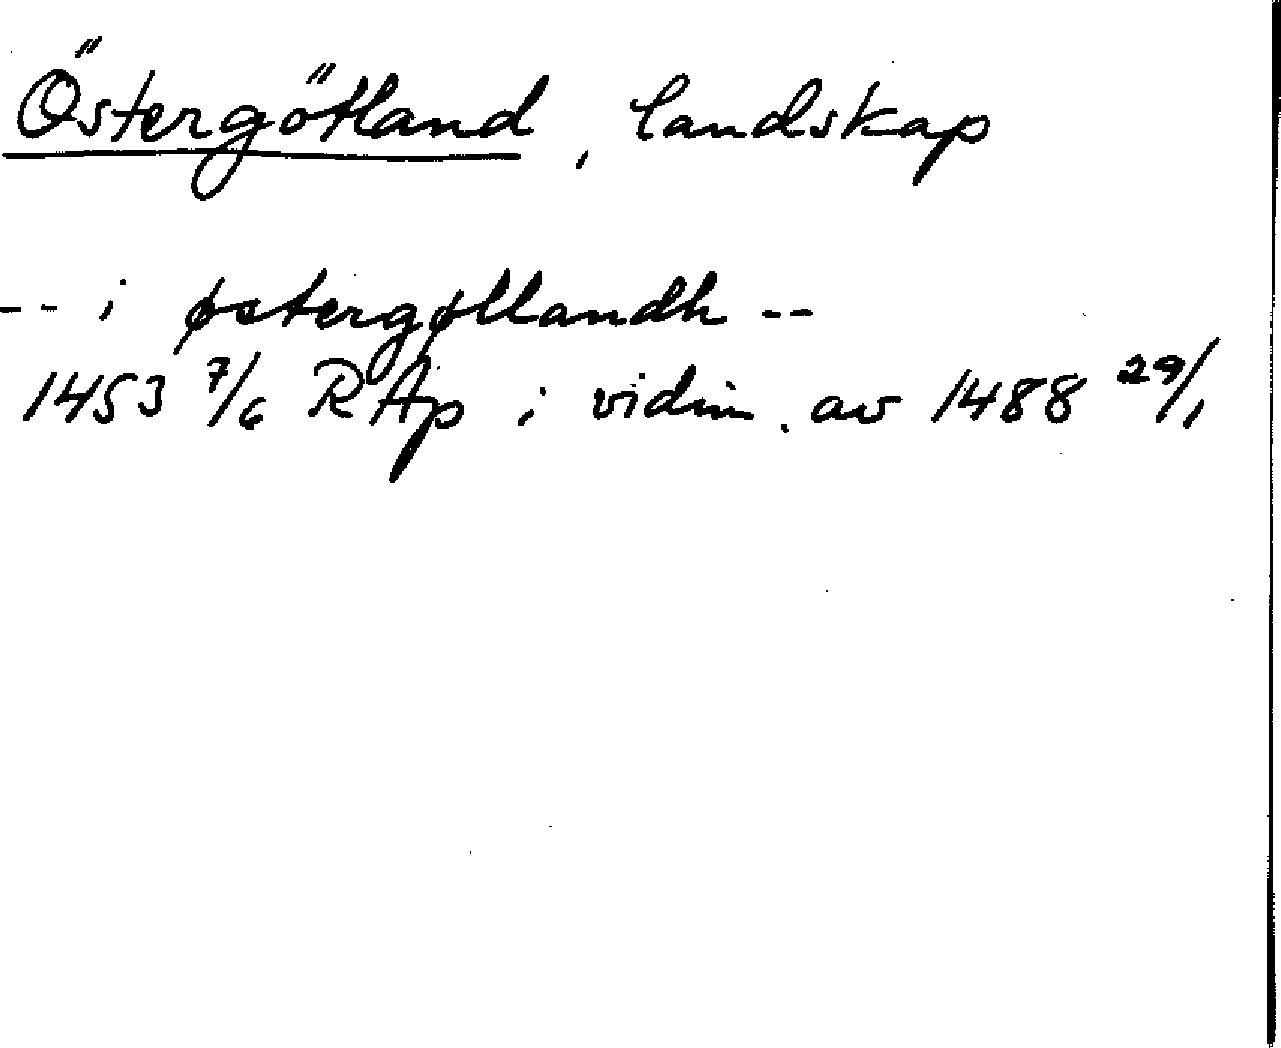 Östergötland, landskap
-- i østergøtlandh --
1453 7/6 RAp i vidim. av 1488 29/1